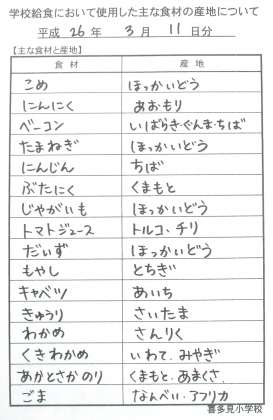 学校給食において使用した主な食材の産地について
平成 26 年 3 月 11 日分
【主な食材と産地】
食材 産地
こめ ほっかいどう
にんにく あおもり
ベーコン いばらき・ぐんま・ちば
たまねぎ ほっかいどう
にんじん ちば
ぶたにく くまもと
じゃがいも ほっかいどう
トマトジュース トルコ、チリ
だいず ほっかいどう
もやし とちぎ
キャベツ あいち
きゅうり さいたま
わかめ さんりく
くきわかめ いわて、みやぎ
あかとさかのり くまもと、あまくさ
ごま なんべい・アフリカ
喜多見小学校